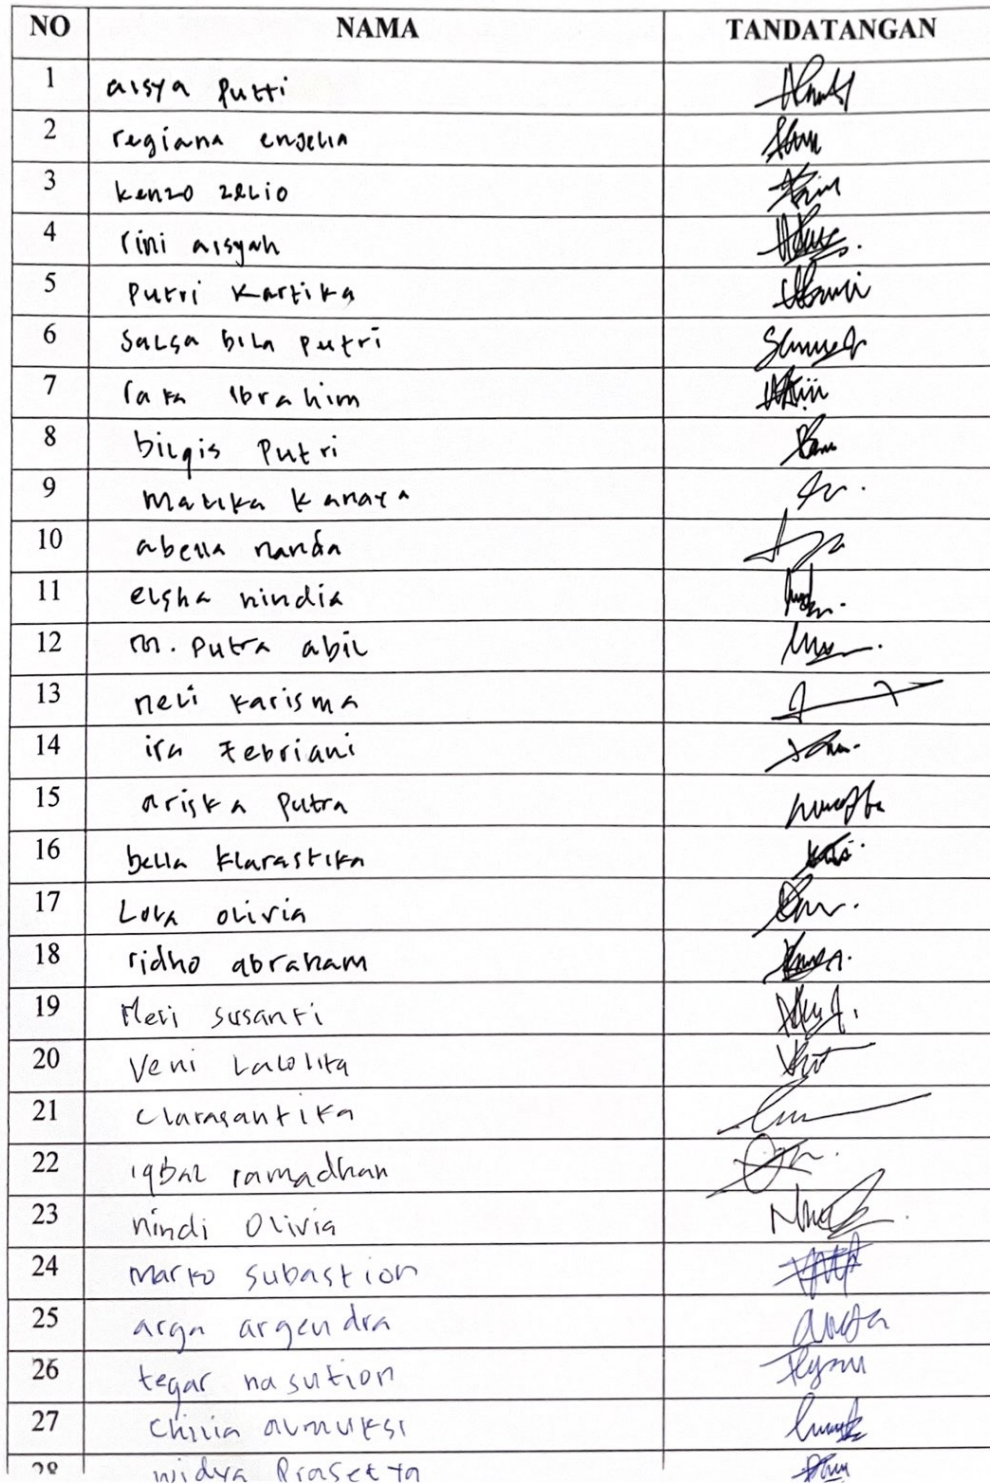 NO NAMA TANDATANGAN
1 aisya putri
2 regiana enjelia
3 kenzo zelio
4 rini aisyah
5 putri kartika
6 salsa bila putri
7 raka ibrahim
8 bilqis putri
9 Malika kanaya
10 abella nanda
11 elsha nindia
12 m. putra abil
13 neli karisma
14 ira febriani
15 ariska putra
16 bella klarastika
17 Lova olivia
18 ridho abraham
19 Meri susanti
20 Veni Lalolita
21 Clarasantika
22 iqbal ramadhan
23 nindi Olivia
24 Marko subastion
25 arga argendra
26 tegar nasution
27
28 widya Prasetya